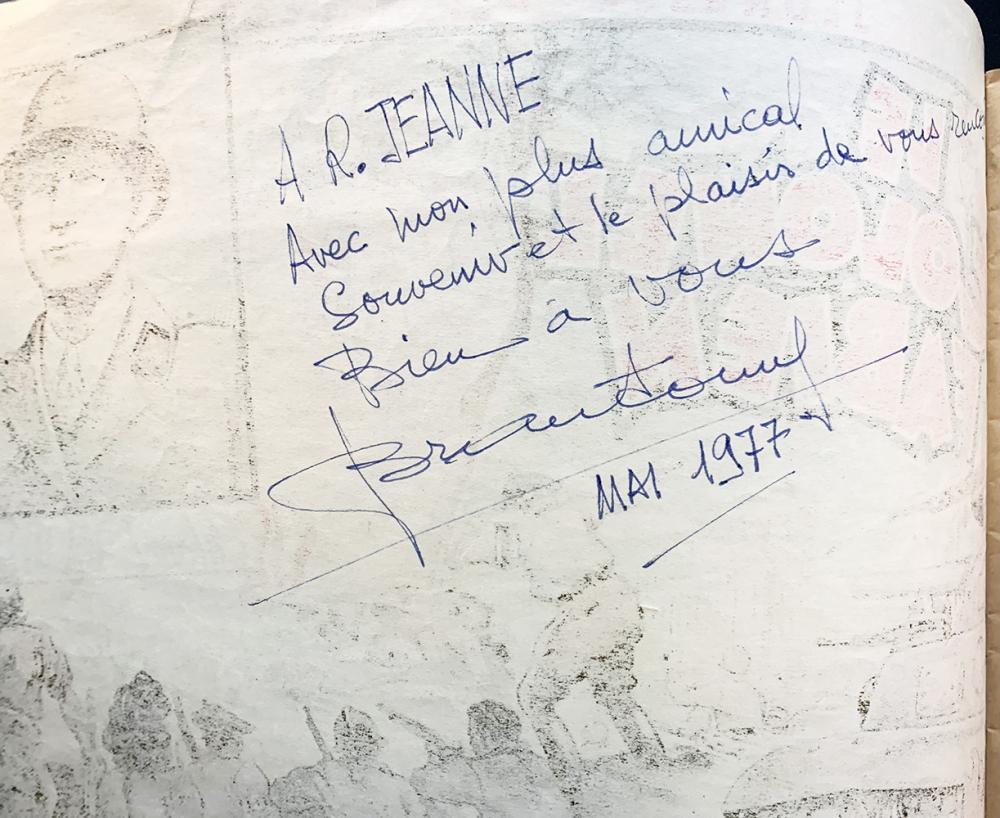 A R. JEANNE
Avec mon plus amical
Souvenir et le plaisir de vous
Bien à vous
MAI 1977